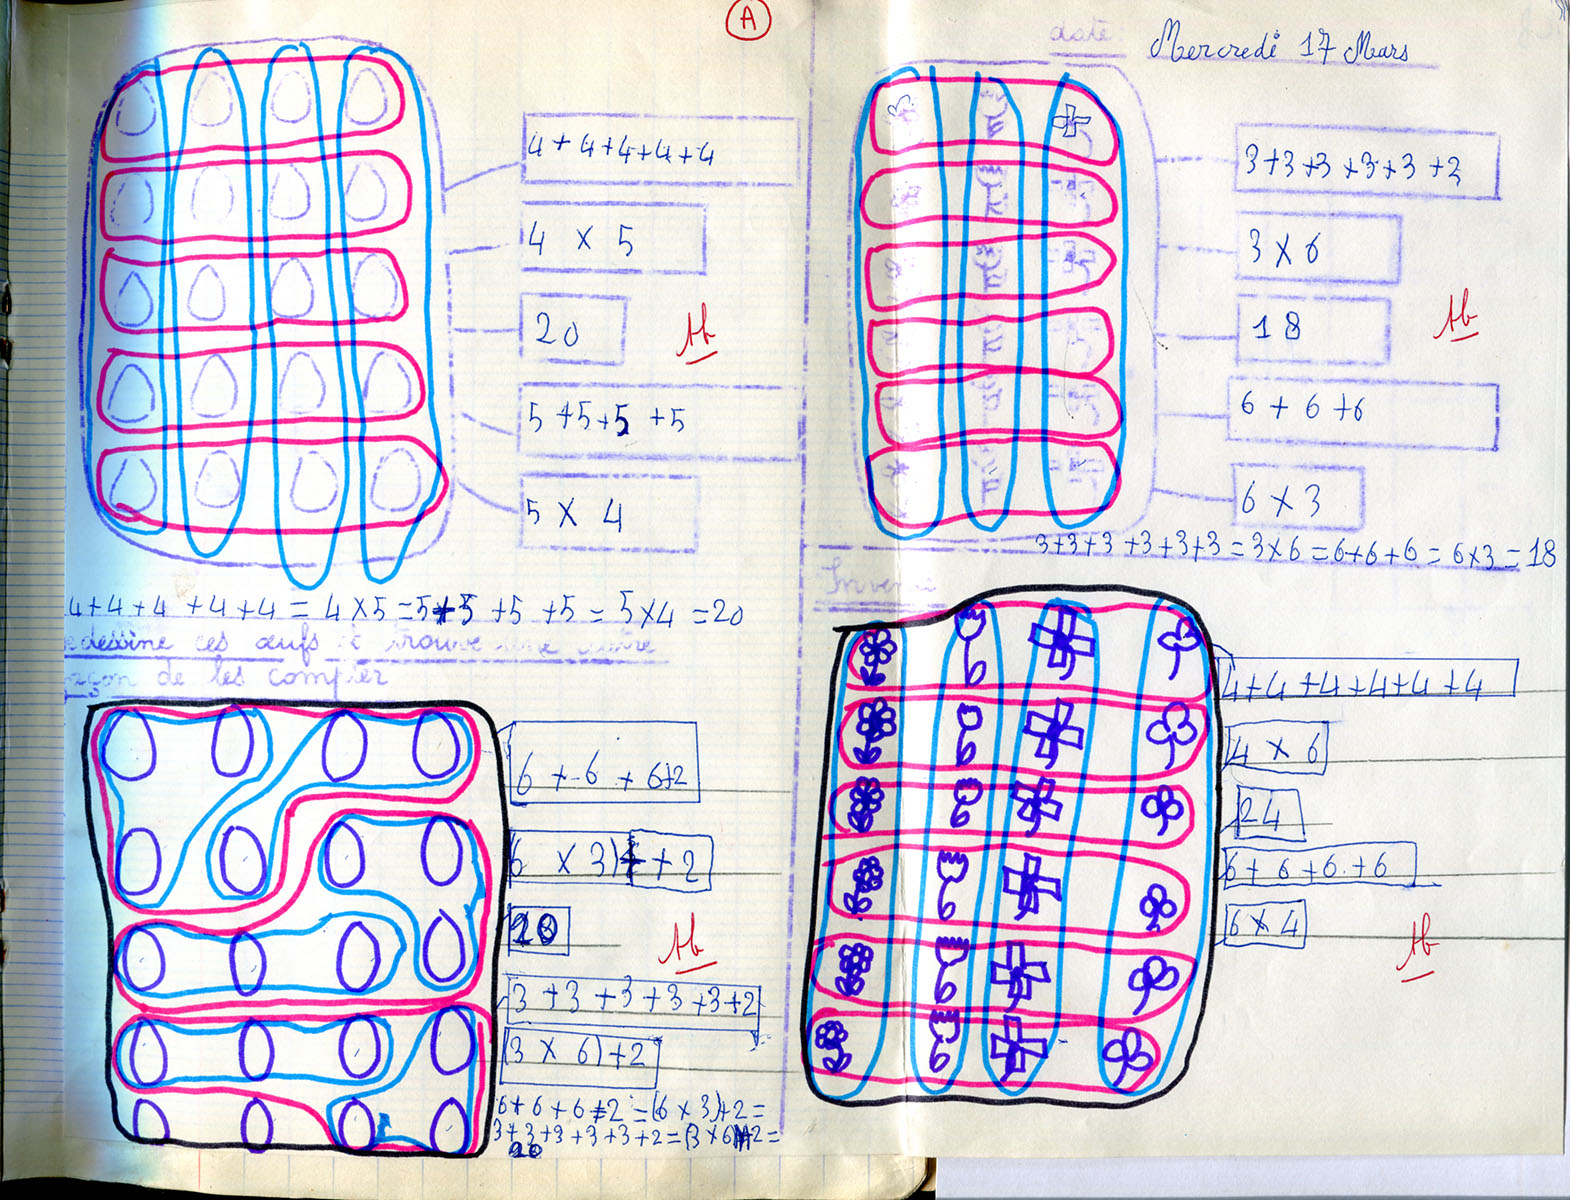 A
4+4+4+4+4
4 x 5
20
Ab
5+5+5+5
5 x 4
4+4+4+4+4 = 4x5 = 5+5+5+5 = 5x4 = 20
dessine ces œufs et trouve une autre
façon de les compter
6+6+6+2
(6 x 3)+2
20
Ab
3+3+3+3+3+2
(3 x 6)+2
6+6+6+2 = (6 x 3)+2 =
3+3+3+3+3+2 = (3 x 6)+2 =
20
date: Mercredi 17 Mars
3+3+3+3+3+3
3 x 6
18
Ab
6+6+6
6 x 3
3+3+3+3+3+3 = 3x6 = 6+6+6 = 6x3 = 18
4+4+4+4+4+4
4 x 6
24
6+6+6+6
6 x 4
Ab